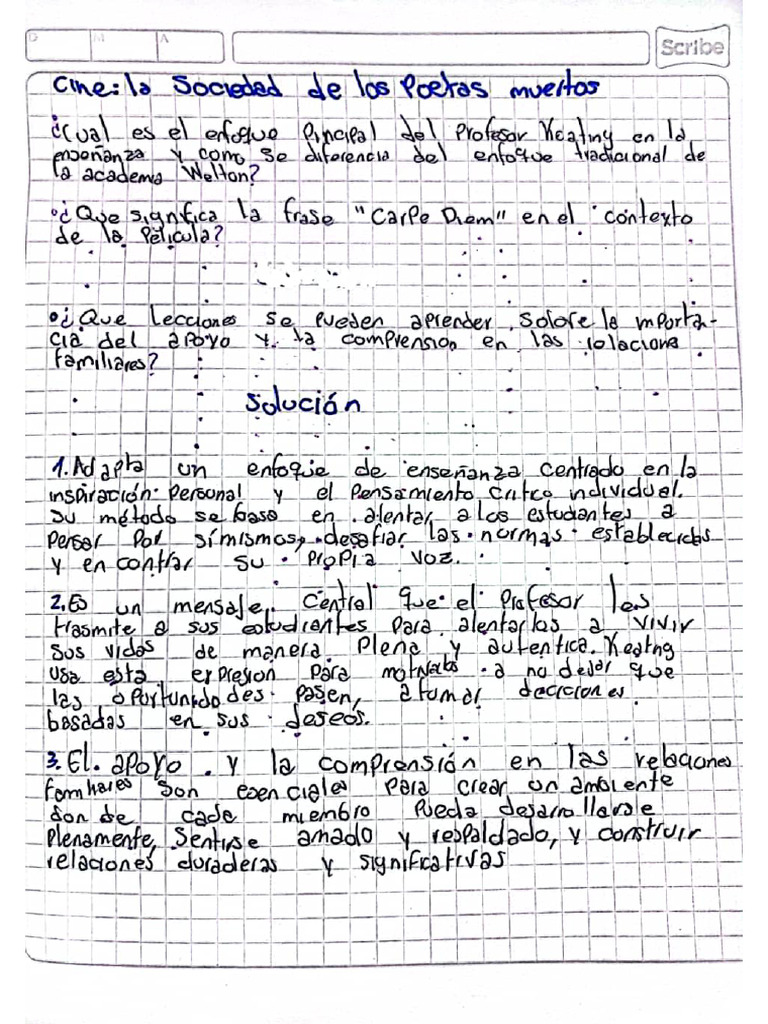 D
M
A
Scribe
Cine: la Sociedad de los Poetas muertos
¿Cual es el enfoque Principal del Profesor Keating en la
enseñanza y como se diferencia del enfoque tradicional de
la academia Welton?
¿Que significa la frase "Carpe Diem" en el contexto
de la Película?
¿Que Lecciones se pueden aprender sobre la importa-
cia del apoyo y la comprension en las relaciones
familiares?
Solución
1. Adapta un enfoque de enseñanza centrado en la
inspiración Personal y el Pensamiento Crítico individual.
Su método se basa en alentar a los estudiantes a
Pensar Por sí mismos, desafiar las normas establecidas
y encontrar su propia voz.
2. Es un mensaje Central que el Profesor les
trasmite a sus estudiantes Para alentarlos a vivir
sus vidas de manera Plena y autentica. Keating
usa esta expresion Para motivarlos a no dejar que
las oportunidades Pasen, a tomar decisiones
basadas en sus deseos.
3. El apoyo y la comprensión en las relaciones
familiares son esenciales Para crear un ambiente
donde cada miembro Pueda desarrollarse
Plenamente, Sentirse amado y respaldado, y construir
relaciones duraderas y significativas